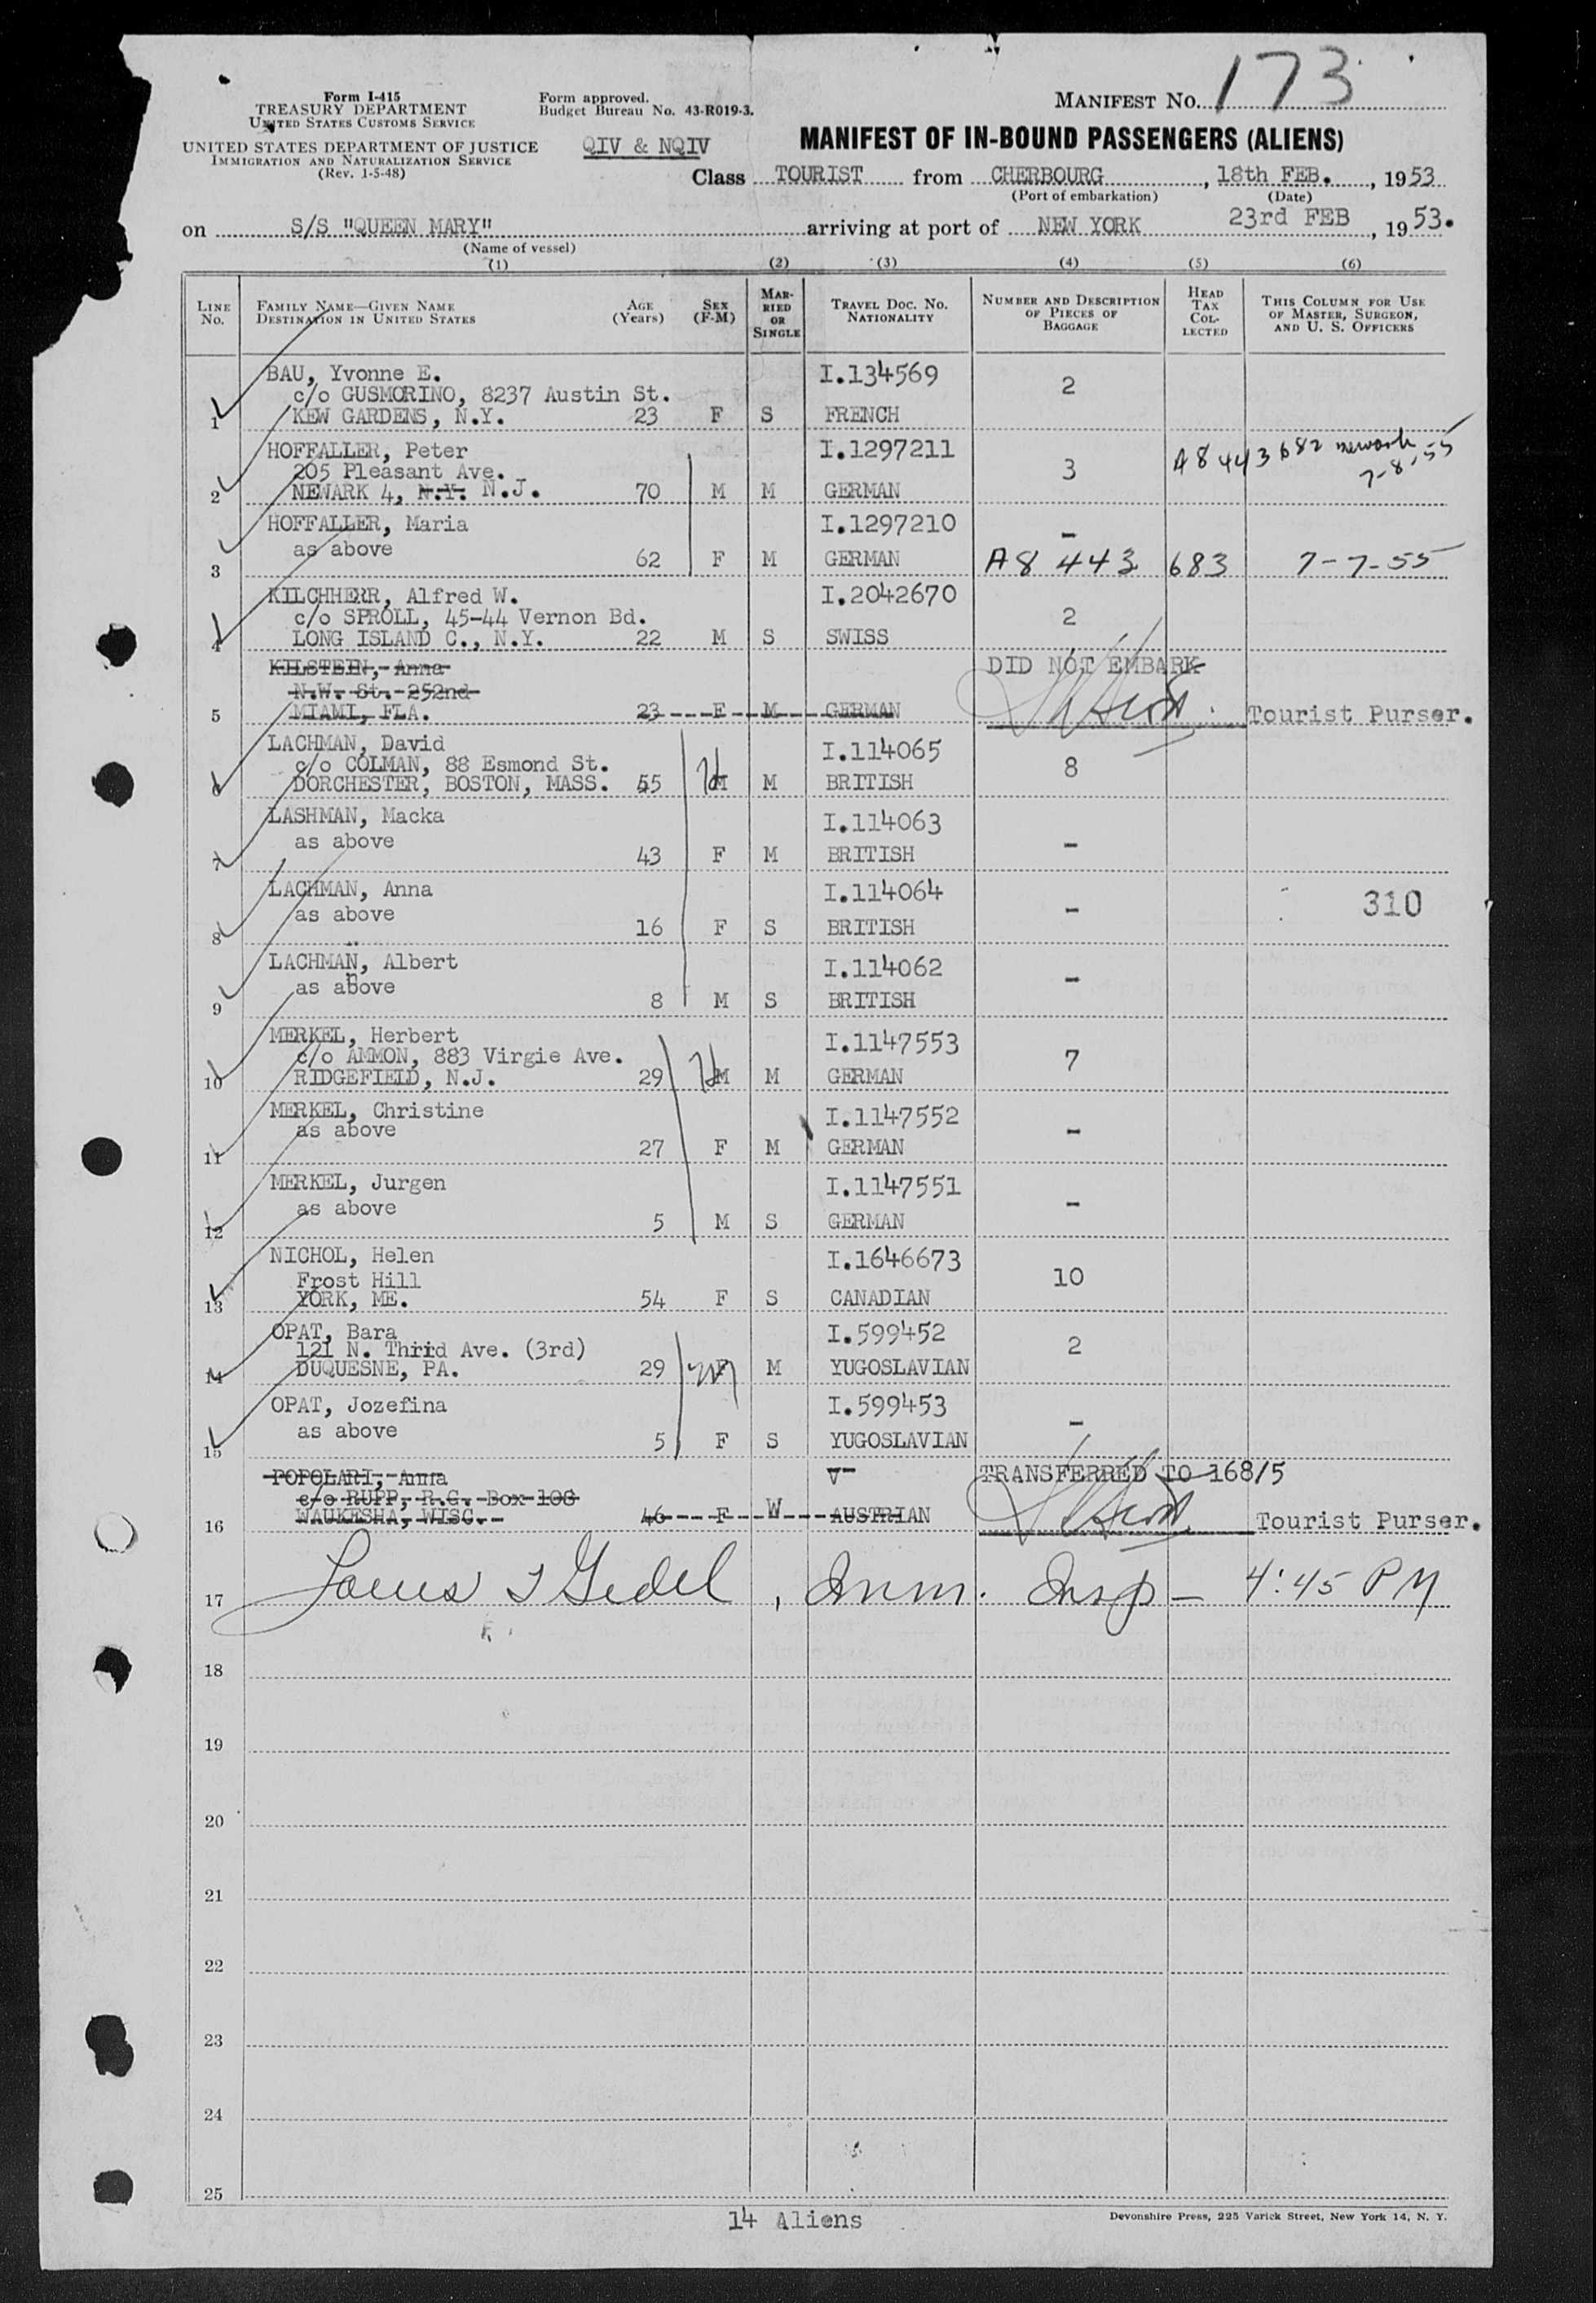 173
Form I-415
TREASURY DEPARTMENT
UNITED STATES CUSTOMS SERVICE
UNITED STATES DEPARTMENT OF JUSTICE
IMMIGRATION AND NATURALIZATION SERVICE
(Rev. 1-5-48)
Form approved.
Budget Bureau No. 43-R019-3.
QIV & NQIV
MANIFEST NO.
MANIFEST OF IN-BOUND PASSENGERS (ALIENS)
Class TOURIST from CHERBOURG, 18th FEB., 1953
(Port of embarkation) (Date)
on S/S "QUEEN MARY" arriving at port of NEW YORK 23rd FEB, 1953.
(Name of vessel)
(1) (2) (3) (4) (5) (6)
LINE NO. FAMILY NAME—GIVEN NAME DESTINATION IN UNITED STATES AGE (Years) SEX (F-M) MARRIED OR SINGLE TRAVEL DOC. NO. NATIONALITY NUMBER AND DESCRIPTION OF PIECES OF BAGGAGE HEAD TAX COLLECTED THIS COLUMN FOR USE OF MASTER, SURGEON, AND U. S. OFFICERS
BAU, Yvonne E. I.134569
c/o GUSMORINO, 8237 Austin St. 2
1 KEW GARDENS, N.Y. 23 F S FRENCH
HOFFALLER, Peter I.1297211
205 Pleasant Ave. 3 A8 443 682 newark
2 NEWARK 4, N.Y. N.J. 70 M M GERMAN 7-8-55
HOFFALLER, Maria I.1297210
as above -
3 62 F M GERMAN A8 443 683 7-7-55
KILCHHERR, Alfred W. I.2042670
c/o SPROLL, 45-44 Vernon Bd. 2
4 LONG ISLAND C., N.Y. 22 M S SWISS
KILSTEIN, Anna DID NOT EMBARK
N.W. St. 252nd
5 MIAMI, FLA. 23 F M GERMAN Tourist Purser.
LACHMAN, David I.114065
c/o COLMAN, 88 Esmond St. 8
6 DORCHESTER, BOSTON, MASS. 55 M M BRITISH
LASHMAN, Macka I.114063
as above -
7 43 F M BRITISH
LACHMAN, Anna I.114064
as above - 310
8 16 F S BRITISH
LACHMAN, Albert I.114062
as above -
9 8 M S BRITISH
MERKEL, Herbert I.1147553
c/o AMMON, 883 Virgie Ave. 7
10 RIDGEFIELD, N.J. 29 M M GERMAN
MERKEL, Christine I.1147552
as above -
11 27 F M GERMAN
MERKEL, Jurgen I.1147551
as above -
12 5 M S GERMAN
NICHOL, Helen I.1646673
Frost Hill 10
13 YORK, ME. 54 F S CANADIAN
OPAT, Bara I.599452
121 N. Thrid Ave. (3rd) 2
14 DUQUESNE, PA. 29 F M YUGOSLAVIAN
OPAT, Jozefina I.599453
as above -
15 5 F S YUGOSLAVIAN
POPOLARI, Anna V- TRANSFERRED TO 168/5
c/o RUPP, R.G. Box 108
16 WAUKESHA, WISC. 46 F W AUSTRIAN Tourist Purser.
17 Louis J Gedel, Imm. Insp - 4:45 PM
18
19
20
21
22
23
24
25
14 Aliens
Devonshire Press, 225 Varick Street, New York 14, N. Y.